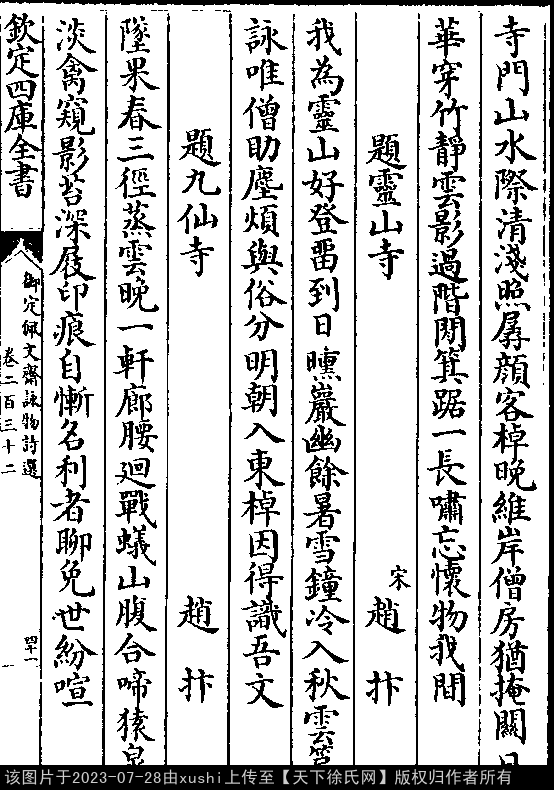 寺門山水際清淺照孱顔客棹晚維岸僧房猶掩關
華穿竹靜雲影過階閒箕踞一長嘯忘懷物我間
題靈山寺 宋 趙抃
我為靈山好登留到日曛巖幽餘暑雪鐘冷入秋雲
詠唯僧助塵煩與俗分明朝入東棹因得識吾文
題九仙寺 趙抃
墜果春三徑蒸雲晚一軒廊腰迴戰蟻山腹合啼猿
淡禽窺影苔深屐印痕自慚名利者聊免世紛喧
欽定四庫全書
御定佩文齋詠物詩選
卷二百三十二
四十一
该图片于2023-07-28由xushi上传至【天下徐氏网】版权归作者所有